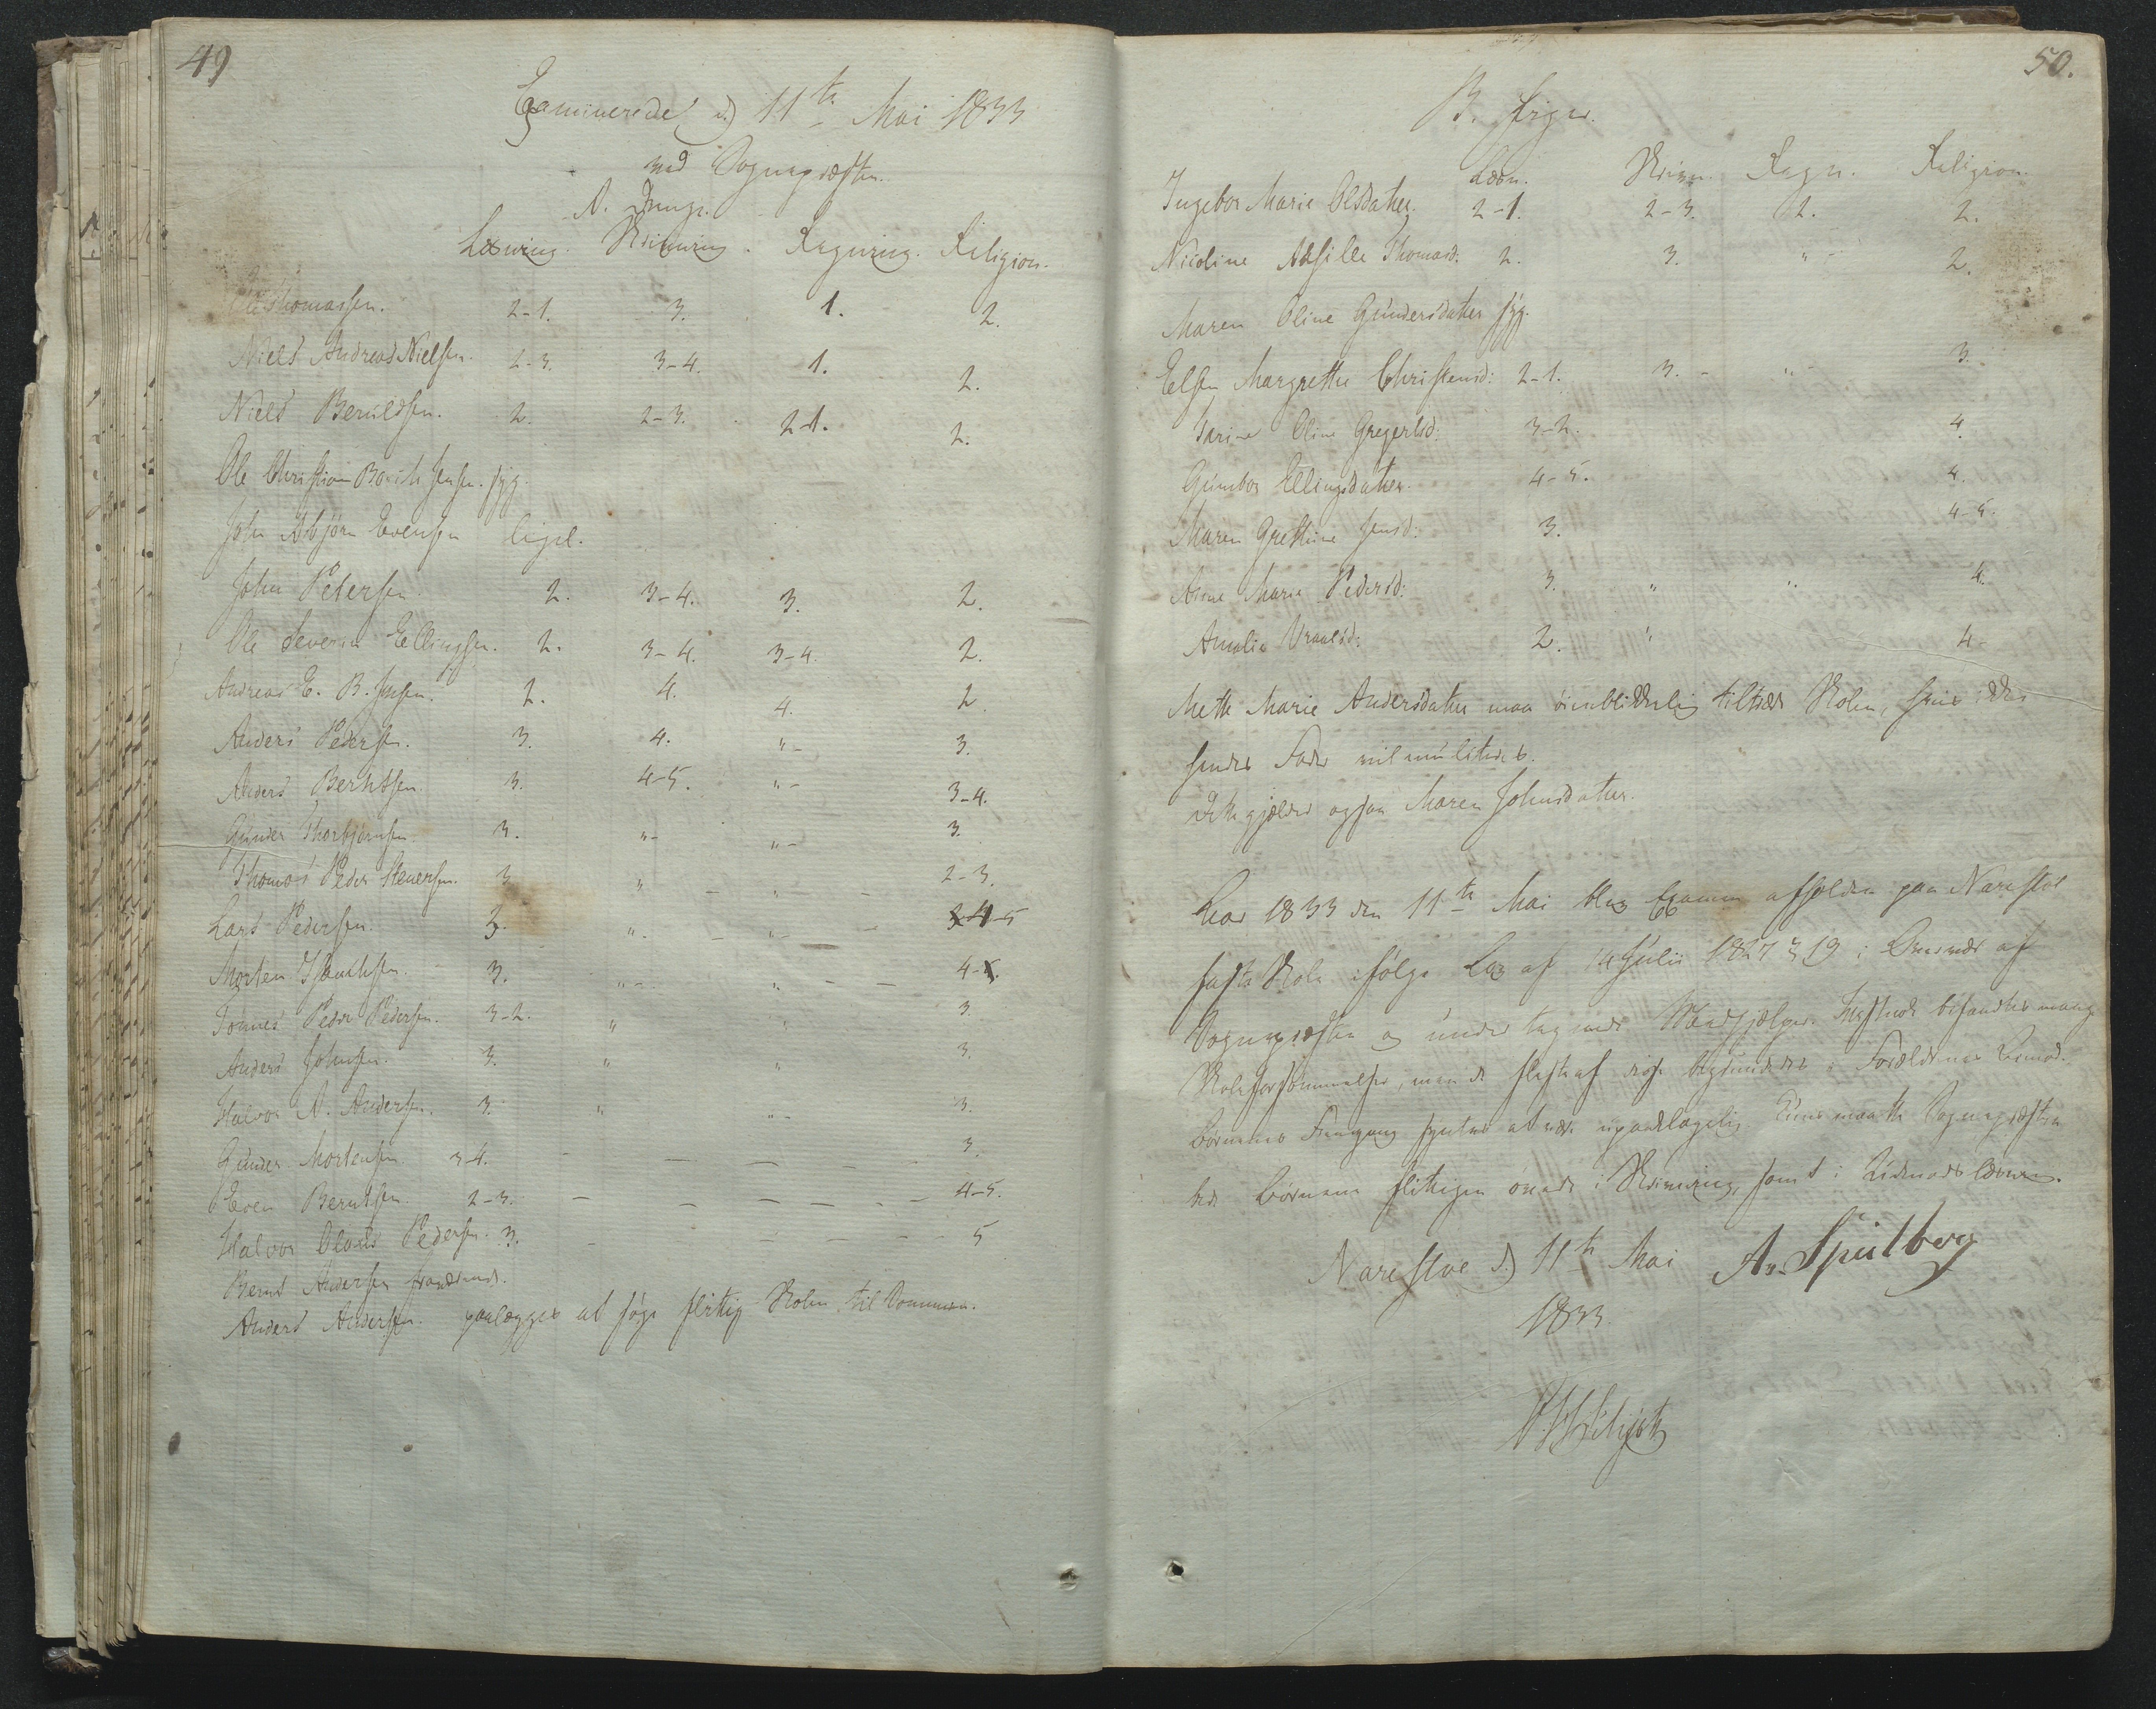 49
Examinerede d) 11te Mai 1833
ved Sognepræsten.
A. Drenge.
Læsning. Skrivning. Regning. Religion.
Ole Thomassen. 2-1. 3. 1. 2.
Niels Andreas Nielsen. 2-3. 3-4. 1. 2.
Niels Beruldsen. 2. 2-3. 2-1. 2.
Ole Christian Jensen. syg.
John Asbjørn Evensen ligel.
John Petersen 2. 3-4. 3. 2.
Ole Severin Ellingsen. 2. 3-4. 3-4. 2.
Andreas E. B. Jensen. 2. 4. 4. 2.
Anders Pedersen. 3. 4. "- 3.
Anders Berntsen. 3. 4-5. "- 3-4.
Gunder Thorbjørnsen. 3. "- "- 3.
Thomas Peder Stenersen. 3 " - " - - 2-3.
Lars Pedersen. 3. ". - "- - 4-5
Morten 3. "- " - - 4-5.
Tønnes Peder Pedersen. 3-2. " " 3.
Anders Johnsen. 3. " " 3.
Halvor A. Andersen. 3. " "- 3.
Gunder Mortensen 3-4. - - - - - 3.
Even Berntsen. 2-3. - - - - - 4-5.
Halvor Olaus Pedersen. 3. - - - - - 5
Bernt Andersen fraværende.
Anders Andersen. paalægges at søge flittig Skolen til Sommeren.
50.
B. Piger.
Læsn. Skrivn. Regn. Religion.
Ingebor Marie Olsdatter. 2-1. 2-3. 2. 2.
Nicoline Thomasd: 2. 3. "- 2.
Maren Oline Gundersdatter syg.
Elsen Margrethe Christensd: 2-1. 3. - "- 3.
Oline Gregersd: 3-2. 4.
Gunbor Ellingsdatter. 4-5. 4.
Maren Grethine Jensd: 3. 4-5.
Anne Marie Pedersd: 3. " " 4.
Amalia 2. " 4-
Mette Marie Andersdatter maa øieblikkelig tiltræde Skolen, hvis ikke
hendes Fader vil mulcteres.
Dette gjælder ogsaa Maren Johnsdatter.
Aar 1833 den 11te Mai blev Examen afholden paa Narestø
faste Skole ifølge Lov af 14 Julii 1827 § 19 i Overvær af
Sognepræsten og undertegnede Medhjelper. befandtes mange
Skoleforsømmelser, men de fleste af disse begrundede i Forældrenes Armod.
Børnenes Fremgang syntes at være upaaklagelig. Kuns maatte Sognepræsten
bede Børnene flittigen øvede i Skrivning, samt i Udenadslæsning.
Narestøe d) 11te Mai A. Spilberg
1833.